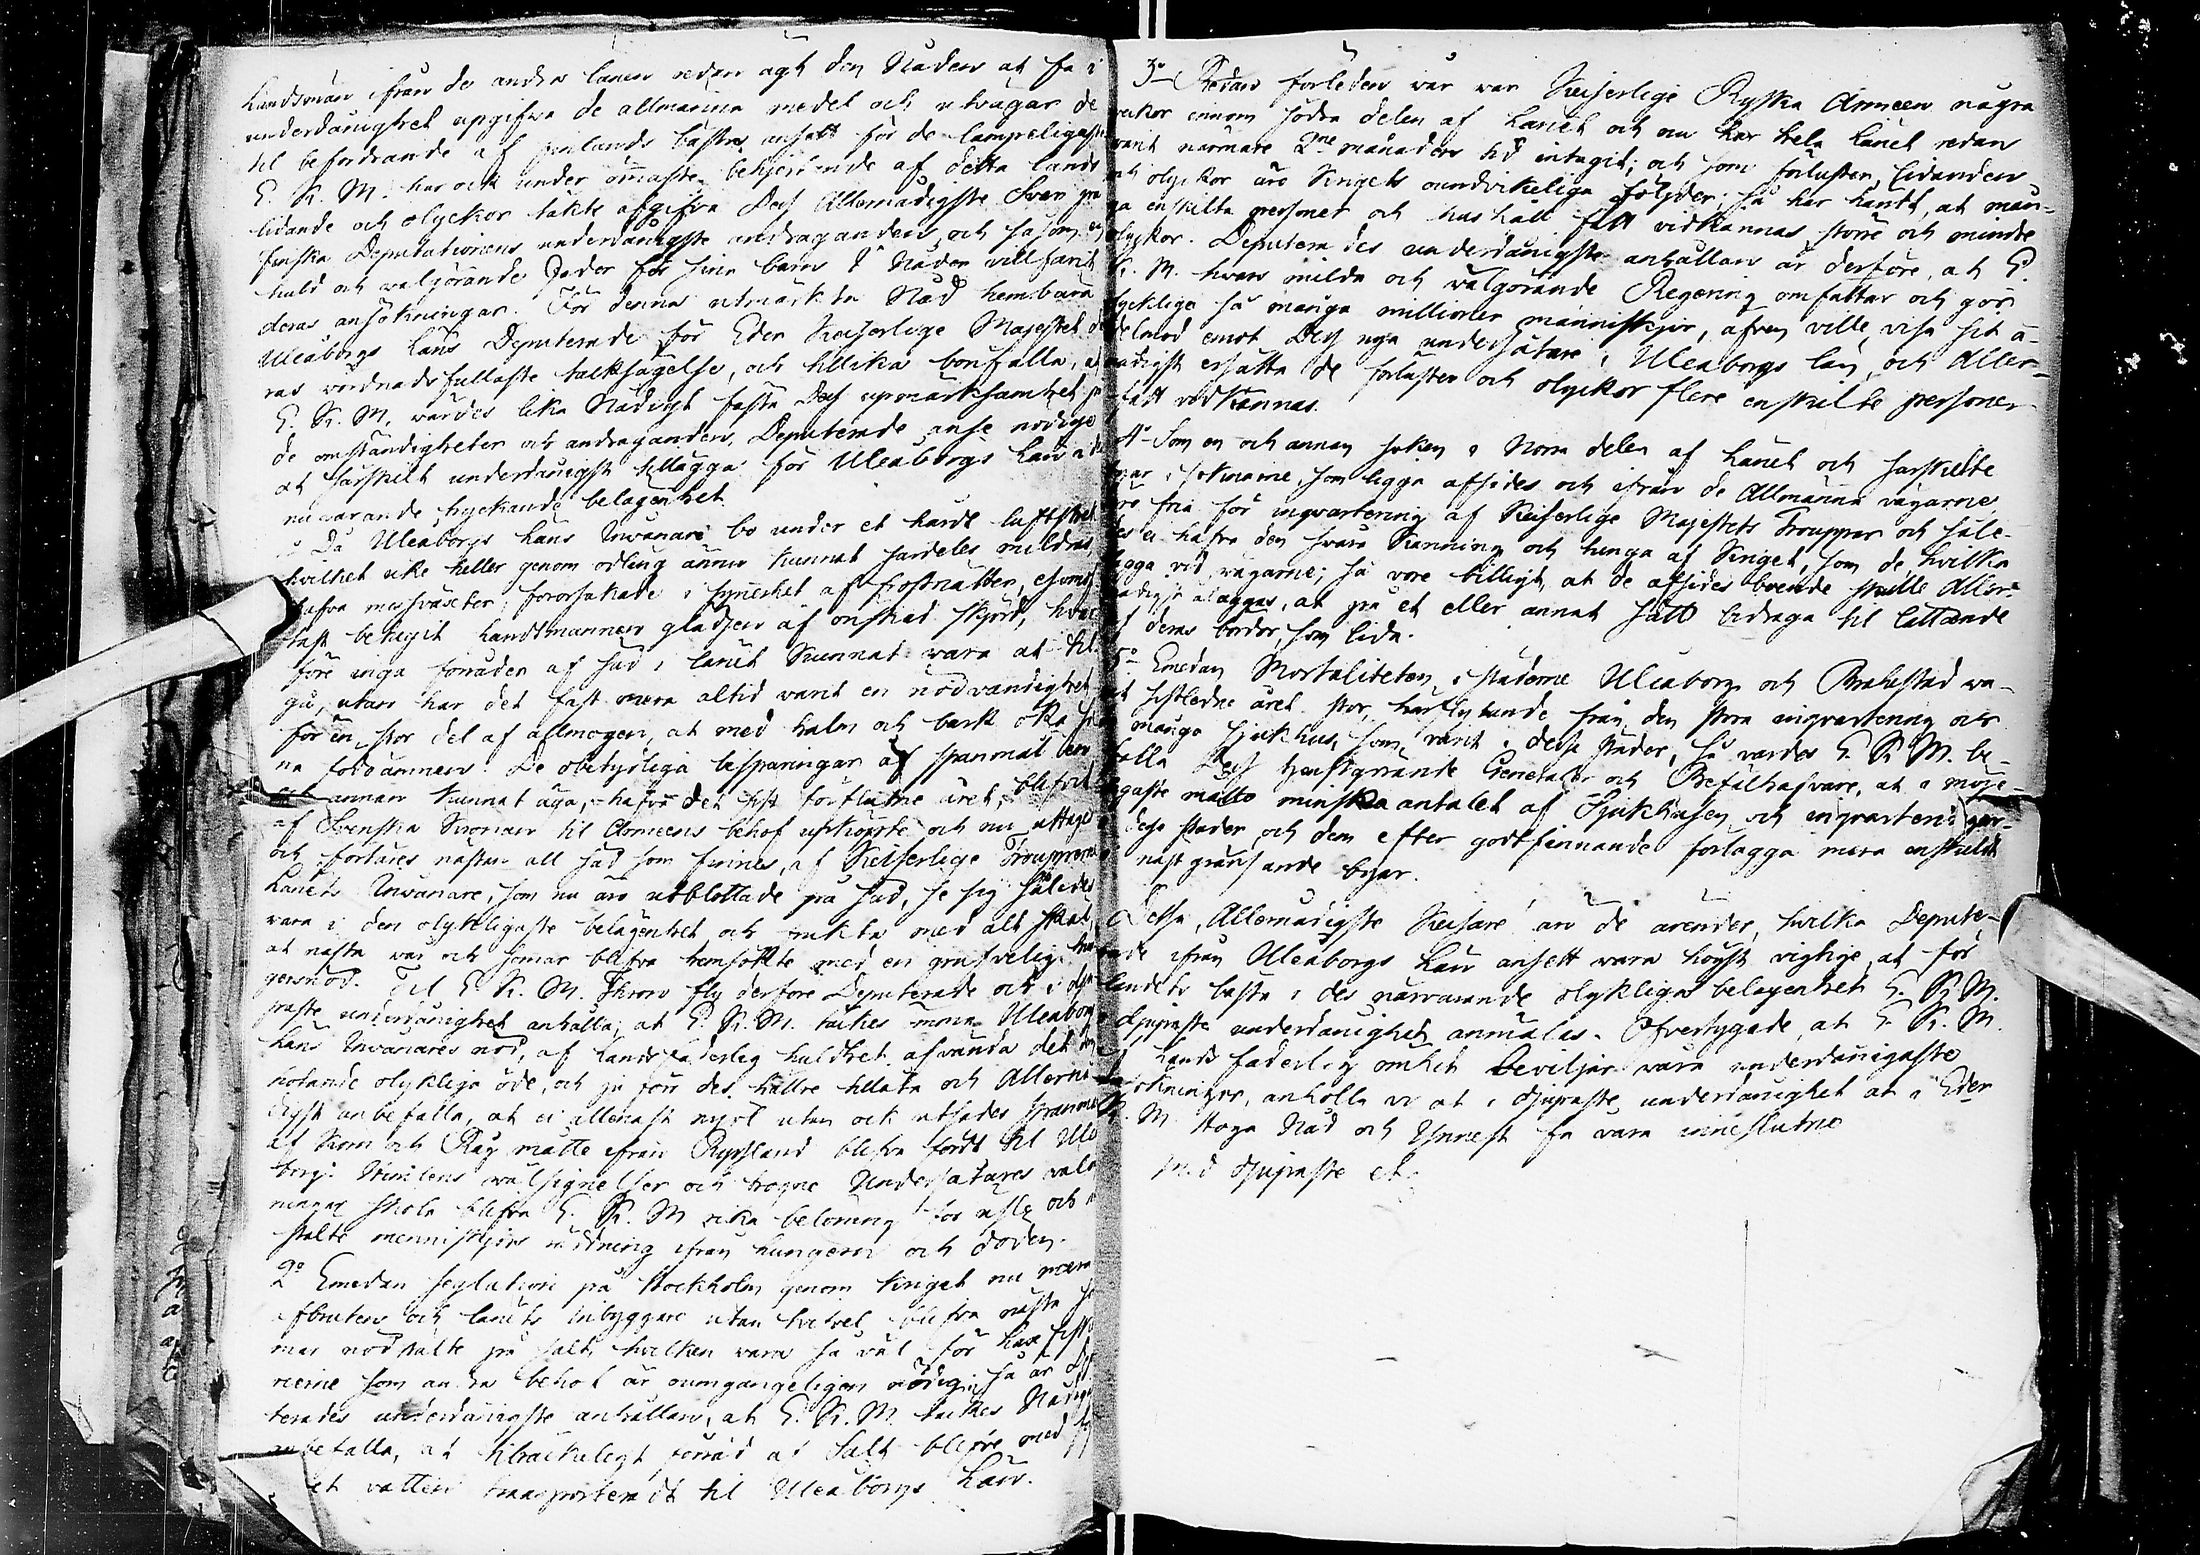 Landsmän ifrån de andra länen redan ägt den Nåden at få i
underdånighet upgifva de allmänna medel och utvägar de
til befordrande af Finlands bästa, ansatt för de lämpeligaste
E. K. M. har ock under ömmaste behjertande af detta lands
lidande och olyckor täkts afgifva Dess Allernådigste Svar på
finska Deputationens underdånigste andraganden, och såsom en
huld och wälgörande Fader för sina barn i Nåder villfarit
deras ansökningar. För denna utmärkta Nåd hembära
Uleåborgs Läns Deputerade för Eder Keiserlige Majestet de
ras wördnadsfullaste tacksägelse, och tillika bönfalla, at
E. K. M. wärdes lika Nådigt fästa Dess upmärksamhet på
de omständigheter och andraganden, Deputerade anse nödige
at särskilt underdånigst tillägga för Uleåborgs Län i des
nuvarande tryckande belägenhet.
1o Då Uleåborgs Läns Invånare bo under et hårdt luftstrek
hvilket icke heller genom odling ännu kunnat särdeles mildras
hafva missväxter, förorsakade i synnerhet af frostnätter, oftast
betagit Landtmannen glädjen af önskad skörd, hvar
före inga förråder af säd i länet kunnat vara at til
gå, utan har det fast mera altid varit en nödvändighet
för en stor del af allmogen, at med halm och bark öka si
na födoämnen. De obetydliga besparingar af spanmål en
och annan kunnat äga, hafva det sist förflutne året, blifvit
af Svenska Kronan til Armeens behof upköpte och nu uttages
och förtäres nästan all säd som finnes, af Keiserlige Troupperne
Länets Invånare, som nu äro utblottade på säd, se sig således
vara i den olykeligaste belägenhet och frukta med alt skäl,
at nästa vår och somar blifva hemsökte med en grufvelig hun
gersnöd. Til E. K. M. Thron fly derföre Deputerade och i dju
paste underdånighet anhålla, at E. K. M. täckes ömma Uleåborgs
Läns Invånares nöd, af Landsfaderlig huldhet afvända det dem
hotande olykliga öde, och ju förr des hällre tillåta och Allernå
digst anbefalla, at ei allenast mjöl utan ock utsädes spanmål
af Korn och Råg måtte ifrån Ryssland blifva fördt til Uleå
borg. Himlens wälsignelser och trogne Undersåtares välö
ningar skola blifva E. K. M. rika belöning för usle och
stälte menniskjors räddning ifrån hungern och döden.
2o Emedan seglation på Stockholm genom kriget nu mera
afbruten och länets inbyggare utan tvifvel blifva nästa so
mar nödstälte på salt, hvilken vara så väl för Laxfiske
rierne som andra behof är oumgängeligen nödig; så är Depu
terades underdånigste anhållan, at E. K. M. täckes Nådigst
anbefalla, at tilräckeligt förråd af Salt blefve med
et vatten transporteradt til Uleåborgs Län.
3o Redan förleden vår var Keiserlige Ryska Armeen några
veckor innom södra delen af Länet och nu har hela Länet redan
varit närmare 2ne månaders tid intagit; och som förluster, lidanden
och olyckor äro Krigets oundvikeliga följder; så har händt, at mån-
ga enskilta personer och hushåll fått vidkännas större och mindre
olyckor. Deputerades underdånigste anhållan är derföre, at E.
K. M. hvars milda och välgörande Regering omfattar och gör
lycklige så många millioner människjor, äfven ville visa sit ä-
delmod emot Dess nya undersåtare i Uleåborgs län, och Aller-
nådigst ersätta de förluster och olyckor flere enskilte personer
fådt vidkännas.
4o Som en och annan soken i Norra delen af Länet och särskilte
byar i soknarne, som ligga afsides och ifrån de Allmänna vägarne,
äre fria för inqvartering af Keiserlige Majestets Troupper och såle-
des ei hafva den svåra känning och tunga af Kriget, som de, hvilka
ligga vid vägarne; så vore billigt, at de afsides boende skulle Aller-
nådigst åläggas, at på et eller annat sätt bidraga til lättande
af deras bördor, som lida.
5o Emedan Mortaliteten i städerne Uleåborg och Brahestad va-
rit sistledne året stor, härflytande från den stora inqvartering och
de många sjukhus, som varit i desse städer, så värdes E. K. M. be-
falla Dess tjenstgörande Generaler och Befälhafvare, at i möje-
ligaste måtto minska antalet af Sjukhusen och inqvarteringar-
i desse städer, och dem efter godtfinnande förlägga mera enskildt
i näst gränsande byar.
Desse, Allernådigste Keisare! äro de ärender, hvilka Depute-
rade ifrån Uleåborgs Län ansett vara högst vigtige, at för
landets bästa i des närvarande olykliga belägenhet E. K. M.
i djupaste underdånighet anmälas. Öfvertygade, at E. K. M.
af Lands faderlig ömhet beviljar våra underdånigaste
ansökningar, anhålla vi at i djupaste underdånighet at i Eder
K. M. Höga Nåd och Ynnest få vara inneslutne
Med djupaste etc.